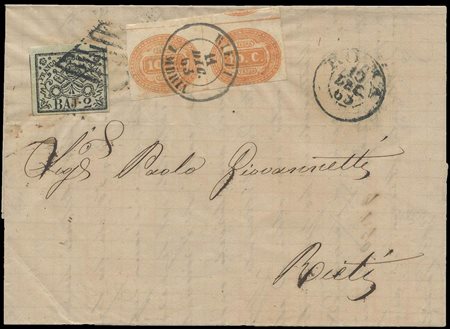 BAJ. 2
10 C
RIETI
14
DIC.
63
ROMA
15
DEC
63
Sig.r Paolo Giovannetti
Rieti